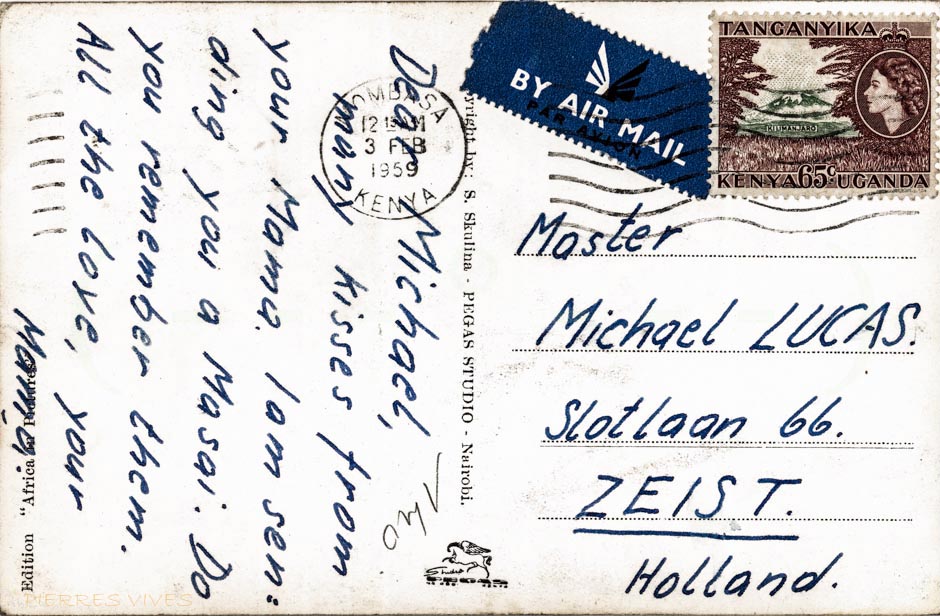 Dear Michael,
many kisses from
your Mama. I am sen=
ding you a Masai. Do
you remember them.
All the love, your
Mama.
Edition "Africa in Pictures"
Copyright by: S. Skulina - PEGAS STUDIO - Nairobi.
MOMBASA
3 FEB
1959
KENYA
BY AIR MAIL
PAR AVION
TANGANYIKA
KILIMANJARO
KENYA 65c UGANDA
Master
Michael LUCAS.
Slotlaan 66.
ZEIST.
Holland.
Studio
PEGAS
PIERRES VIVES